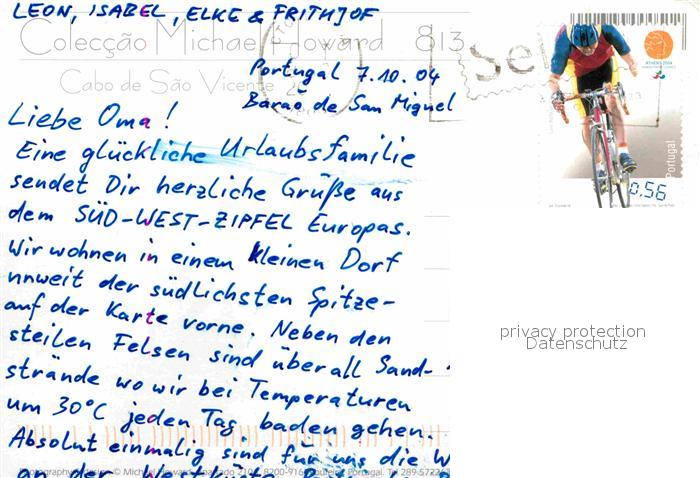 LEON, ISABEL, ELKE & FRITHJOF
Colecção Michael Howard 813
Cabo de São Vicente
Portugal 7.10.04
Barao de San Miguel
Liebe Oma!
Eine glückliche Urlaubsfamilie
sendet Dir herzliche Grüße aus
dem SÜD-WEST-ZIPFEL Europas.
Wir wohnen in einem kleinen Dorf
unweit der südlichsten Spitze-
auf der Karte vorne. Neben den
steilen Felsen sind überall Sand-
strände wo wir bei Temperaturen
um 30°C jeden Tag baden gehen.
Absolut einmalig sind für uns die W
an der Westküste
ATHENS 2004
Portugal
0.56
privacy protection
Datenschutz